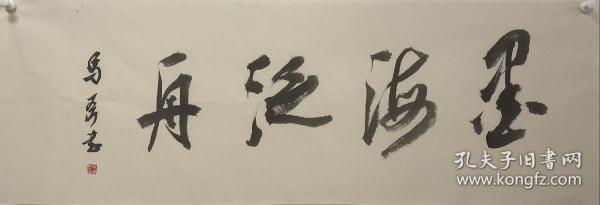 墨海泛舟
马秀书
孔夫子旧书网
www.kongfz.com